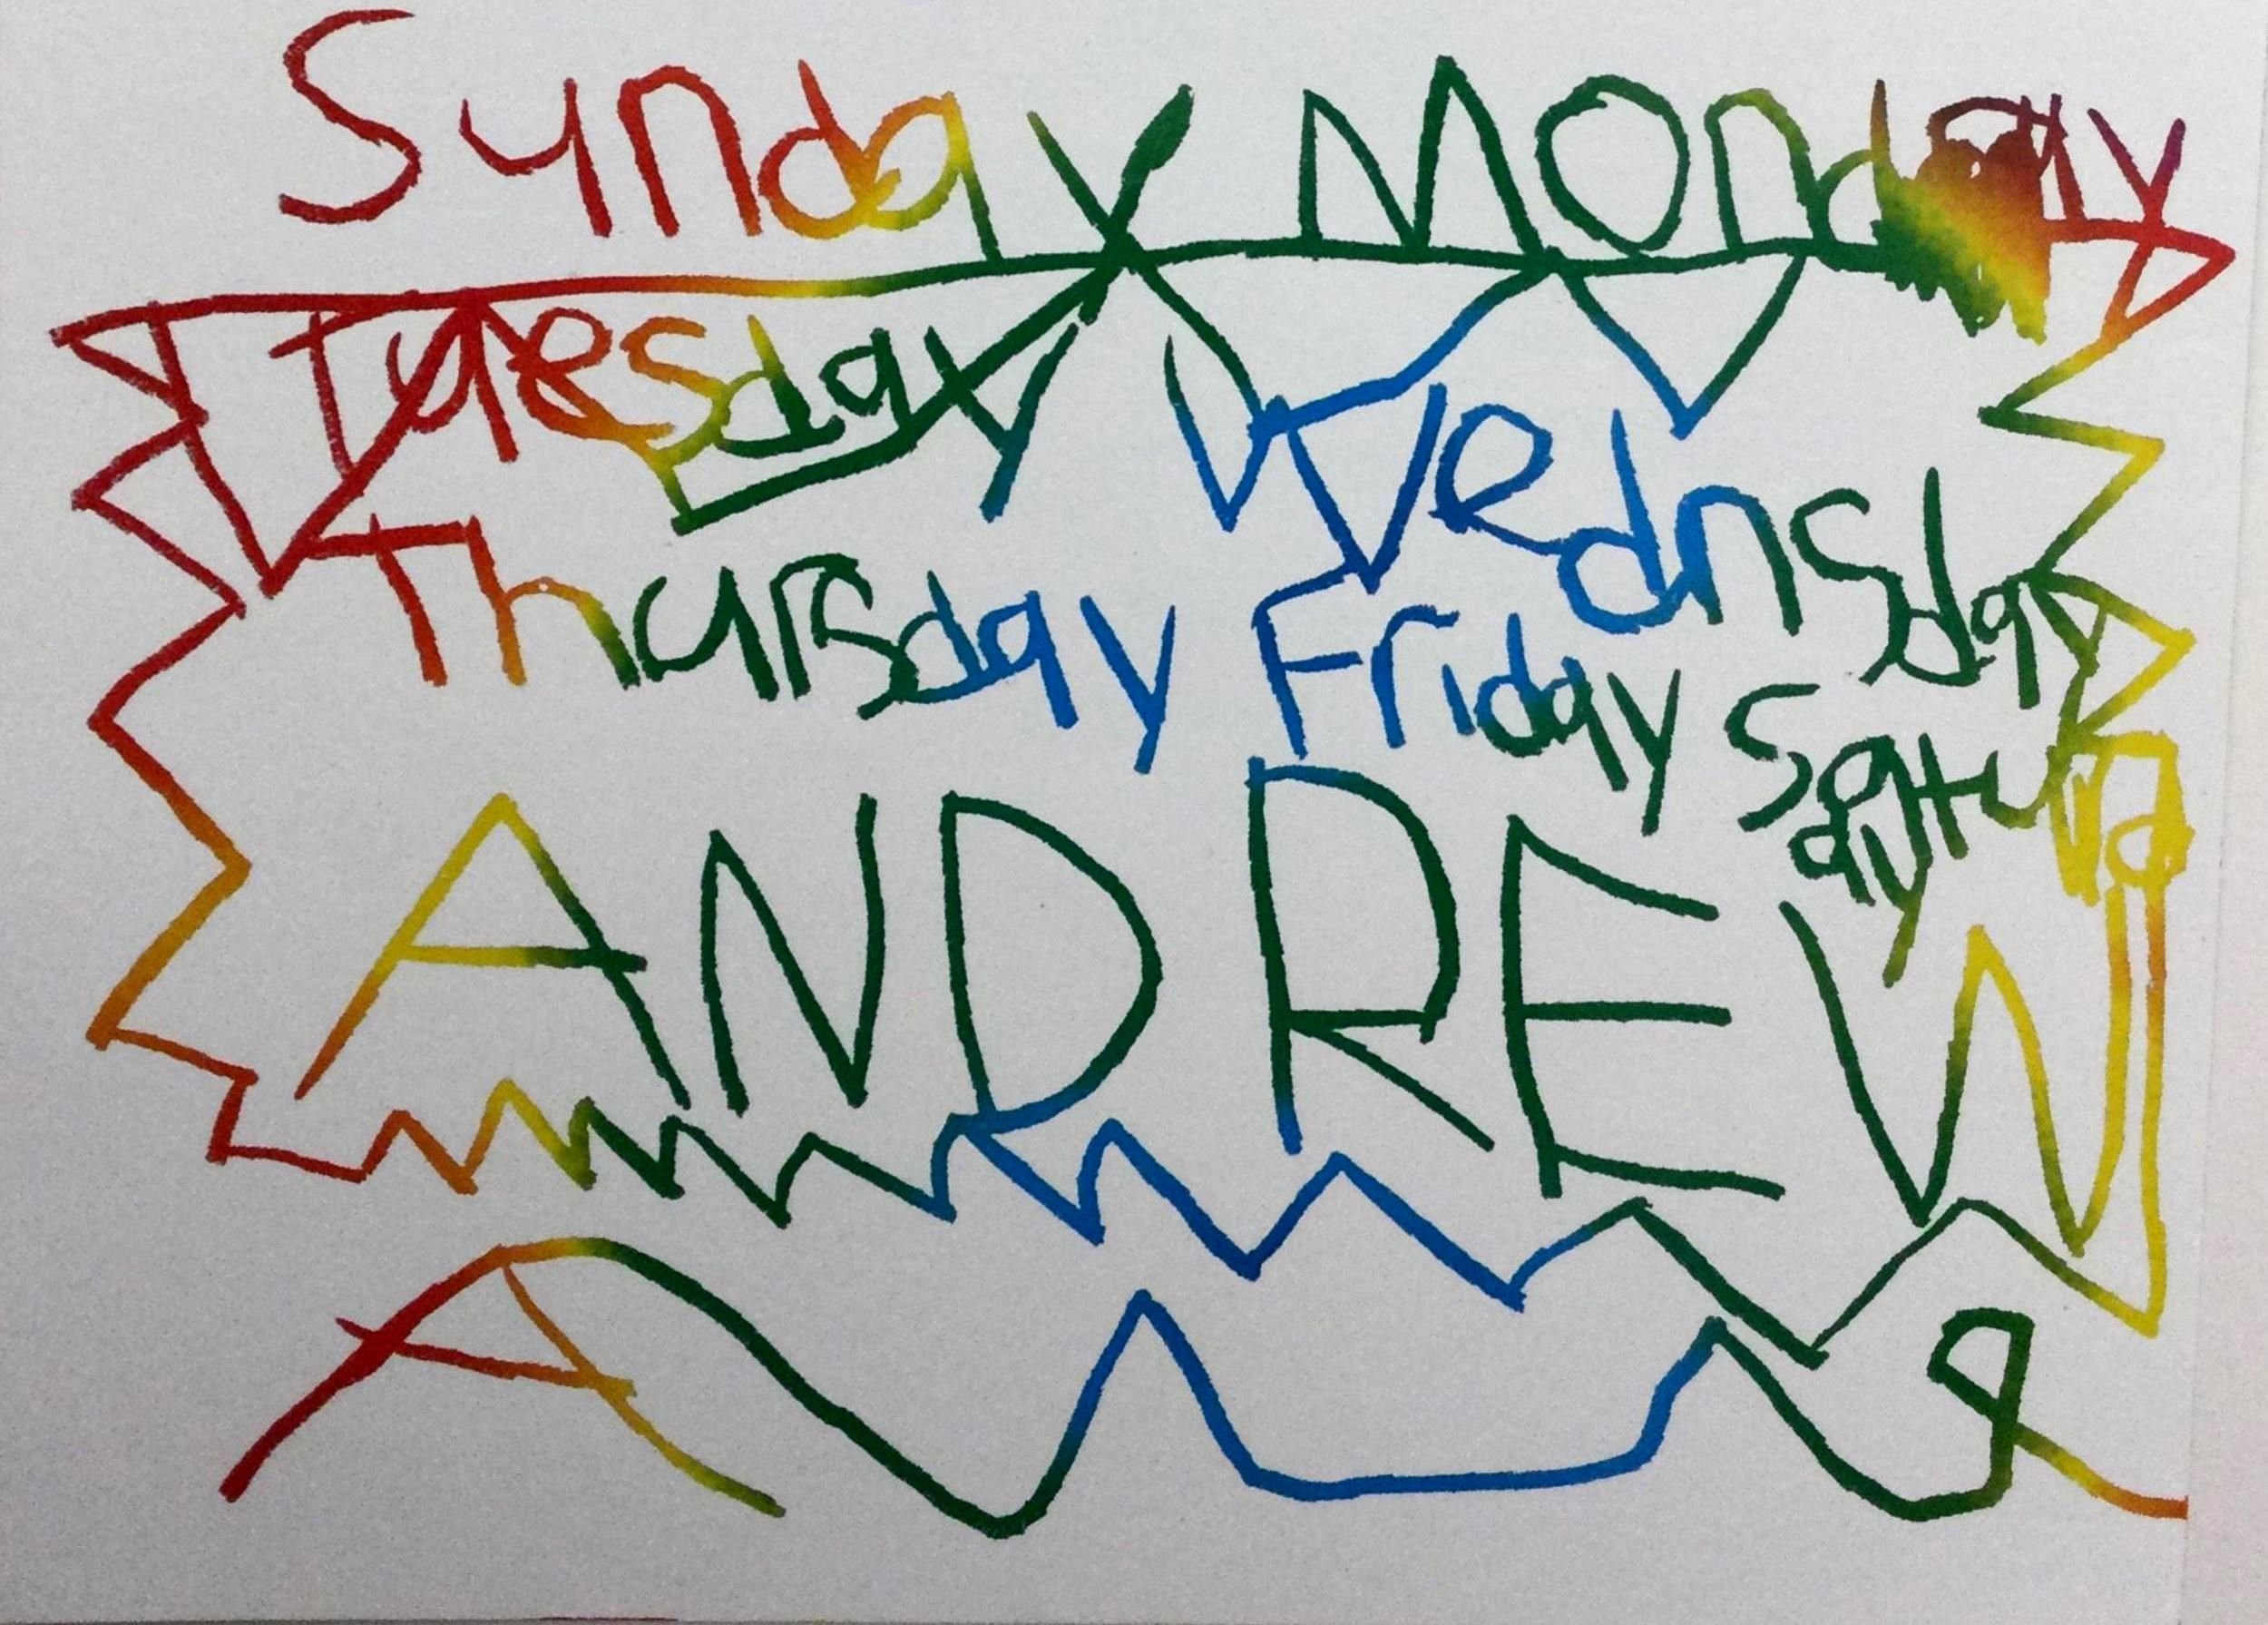 Sunday Monday
Tuesday Wednsday
Thursday Friday Satur
day
ANDREW
A